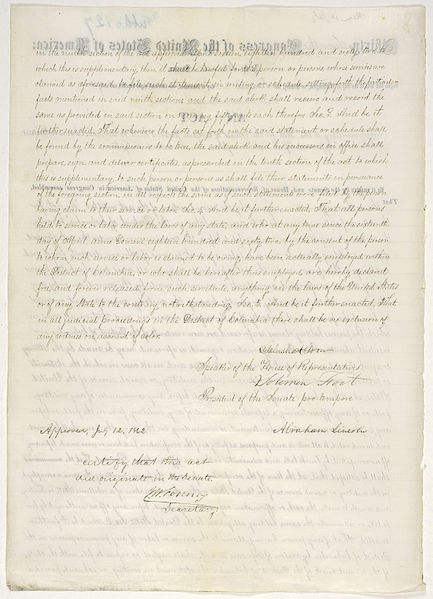 in the ninth section of the act approved April sixteen, eighteen hundred and sixty two, to
which this is supplementary, then it shall be lawful for the person or persons whose services are
claimed as aforesaid to file such statement in writing or schedule setting forth the particular
facts mentioned in said ninth section; and the said clerk shall receive and record the
same as provided in said section on receiving fifty cents each therefor. Sec. 3. And be it
further enacted, That whenever the facts set forth in the said statement or schedule shall
be found by the commissioners to be true, the said clerk and his successors in office shall
prepare, sign and deliver certificates, as prescribed in the tenth section of the act to which
this is supplementary, to such person or persons as shall file their statements in pursuance
of the foregoing section, in all respects the same as if such statements were filed by the person
having claim to their service or labor. Sec. 4. And be it further enacted, That all persons
held to service or labor under the laws of any state, and who at any time since the sixteenth
day of April, anno Domini eighteen hundred and sixty two, by the consent of the person
to whom such service or labor is claimed to be owing, have been actually employed within
the District of Columbia, or who shall be hereafter thus employed, are hereby declared
free, and forever released from such servitude, anything in the laws of the United States
or of any State to the contrary notwithstanding. Sec. 5. And be it further enacted, That
in all judicial proceedings in the District of Columbia there shall be no exclusion of
any witness on account of color.
Galusha A Grow
Speaker of the House of Representatives
Solomon Foot
President of the Senate pro tempore.
Approved, July 12, 1862
Abraham Lincoln
I certify that this act
did originate in the Senate.
J W Forney
Secretary